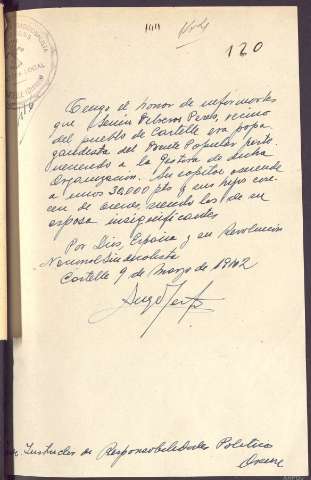 120
Tengo el honor de informarles
que Benino Pérez, vecino
del pueblo de Cartelle era propa
gandista del Frente Popular perte
neciendo a la Gestora de dicha
Organización. Su capital asciende
a unos 30,000 pts y sus hijos care
cen de bienes siendo los de su
esposa insignificantes
Por Dios, España y su Revolución
Nacional Sindicalista
Cartelle 9 de Marzo de 1942
Instructor de Responsabilidades Politicas
Orense